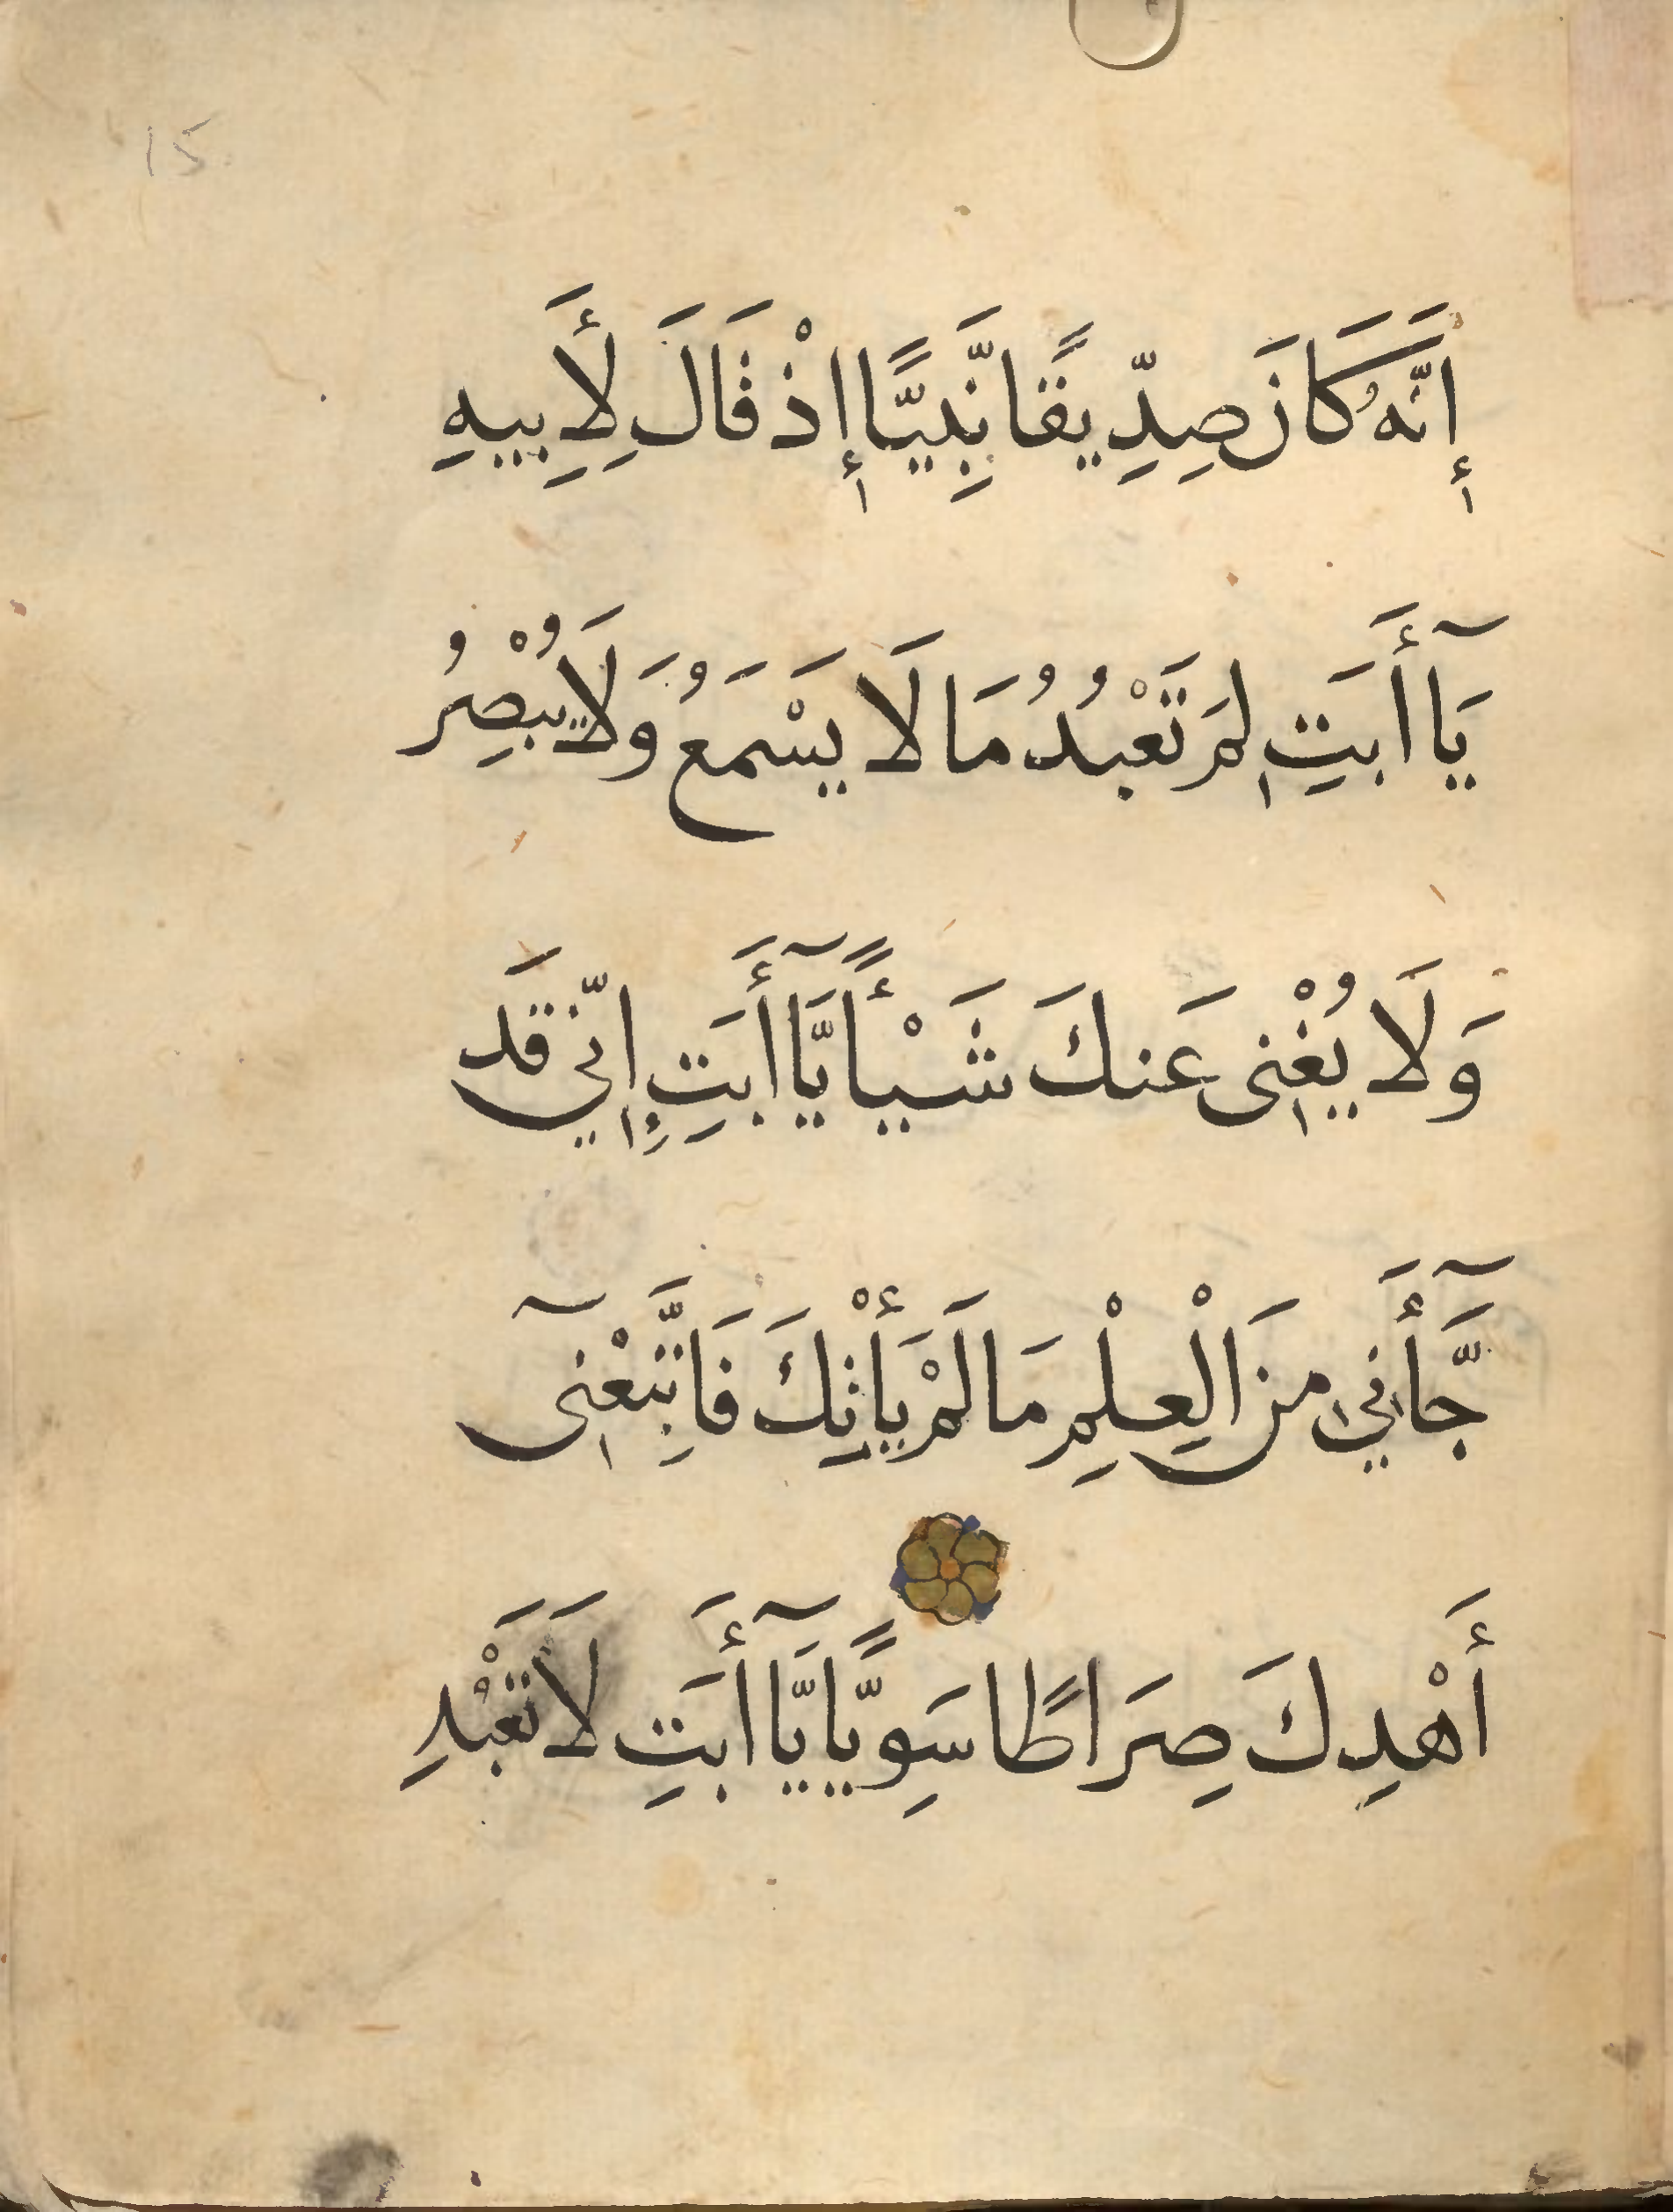 15
إِنَّهُ كَانَ صِدِّيقًا نَّبِيًّا إِذْ قَالَ لِأَبِيهِ
يَآ أَبَتِ لِمَ تَعْبُدُ مَا لَا يَسْمَعُ وَلَا يُبْصِرُ
وَلَا يُغْنِى عَنكَ شَيْـًٔا يَّآ أَبَتِ إِنِّي قَد
جَّآأَنِي مِنَ الْعِلْمِ مَا لَمْ يَأْتِكَ فَاتَّبِعْنِىٓ
أَهْدِكَ صِرَاطًا سَوِيًّا يَّآ أَبَتِ لَا تَعْبُدِ